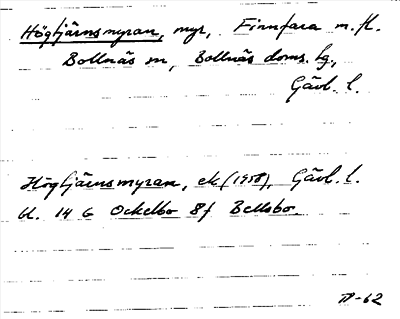 Högtjärnsmyran, myr, Finnfara m.fl.
Bollnäs sn, Bollnäs doms. hg.,
Gävl. l.
Högtjärnsmyran, ek (1958), Gävl. l.
bl. 14 G Ockelbo 8f Bellsbo
-62